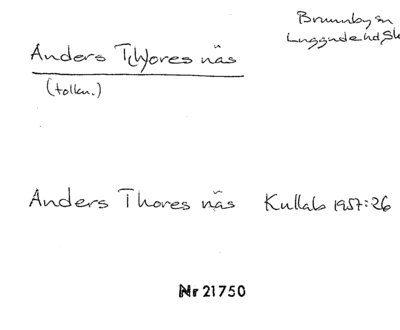 Brunnby sn
Luggude hd, Sk
Anders T(h)ores näs
(tolkn.)
Anders Thores näs Kullab 1957:26
Nr 21750